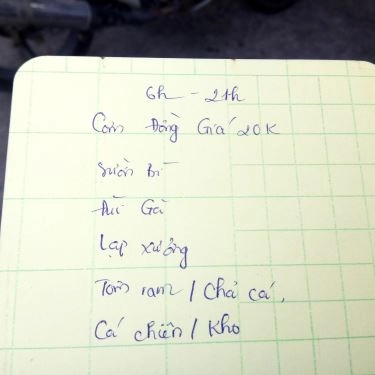 6h - 21h
Cơm Đồng Giá 20K
Sườn Bì
Đùi Gà
Lạp xưởng
Tôm ram / Chả cá.
Cá chiên / Kho